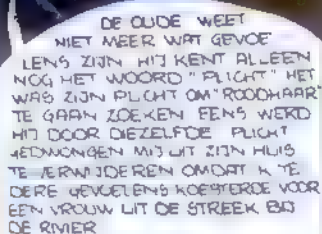 DE OUDE WEET
NIET MEER WAT GEVOE
LENS ZIJN HIJ KENT ALLEEN
NOG HET WOORD "PLICHT" HET
WAS ZIJN PLICHT OM "ROODHAAR"
TE GAAN ZOEKEN EENS WERD
HIJ DOOR DIEZELFDE PLICHT
GEDWONGEN MIJ UIT ZIJN HUIS
TE VERWIJDEREN OMDAT IK TE
DERE GEVOELENS KOESTERDE VOOR
EEN VROUW UIT DE STREEK BIJ
DE RIVIER